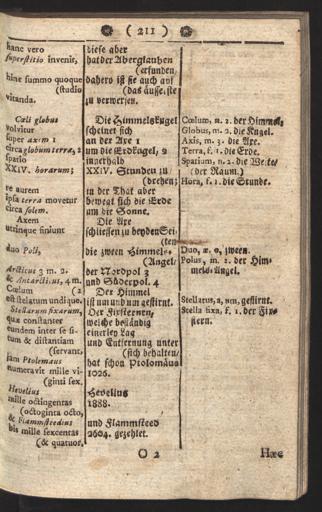 ( 211 )
hanc vero
superstitio invenit,
hinc summo quoque
(studio
vitanda.
Cœli globus
volvitur
super axim 1
circa globum terræ, 2
spatio
XXIV. horarum;
re autem
ipsa terra movetur
circa solem.
Axem
utrinque finiunt
duo Poli,
Arcticus 3 m. 2.
& Antarcticus, 4 m.
Cœlum (2
est stellatum undique.
Stellarum fixarum,
quæ constanter
eundem inter se si-
tum & distantiam
(servant,
jam Ptolomæus
numeravit mille vi-
(ginti sex,
Hevelius
mille octingentas
(octoginta octo,
& Flammstedius
bis mille sexcentas
(& quatuor.
diese aber
hat der Aberglauben
(erfunden,
dahero ist sie auch auf
(das äusserste
zu verwerfen.
Die Himmelskugel
scheinet sich
an der Axe 1
um die Erdkugel, 2
innerhalb
XXIV. Stunden zu
(drehen;
in der That aber
bewegt sich die Erde
um die Sonne.
Die Axe
schliessen zu beyden Sei-
(ten
die zween Himmel-
(Angel/
der Nordpol 3
und Süderpol. 4
Der Himmel
ist um und um gestirnt.
Der Fixsternen,
welche beständig
einerley Lag
und Entfernung unter
(sich behalten/
hat schon Ptolomäus
1026.
Hevelius
1888.
und Flammsteed
2604. gezehlet.
Cœlum, n. 2. der Himmel,
Globus, m. 2. die Kugel.
Axis, m. 3. die Axe.
Terra, f. 1. die Erde.
Spatium, n. 2. die Weite/
(der Raum.)
Hora, f. 1. die Stunde.
Duo, æ, o, zween.
Polus, m. 2. der Him-
mels-Angel.
Stellatus, a, um, gestirnt.
Stella fixa, f. 1. der Fix-
stern.
O 2
Hæc